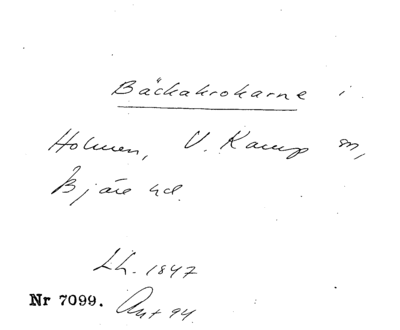 Bäckakrokarne i
Holmen, V. Karup sn,
Bjäre hd.
Lh. 1847
Nr 7099. Ant 94.